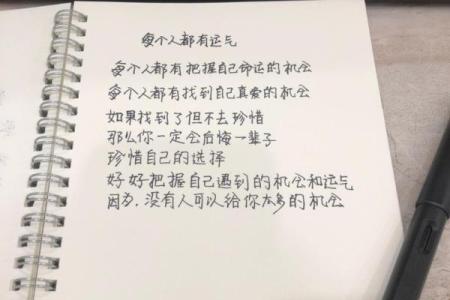 每个人都有运气
每个人都有把握自己命运的机会
每个人都有找到自己真爱的机会
如果找到了但不去珍惜
那么你一定会后悔一辈子
珍惜自己的选择
好好把握自己遇到的机会和运气
因为，没有人可以给你太多的机会